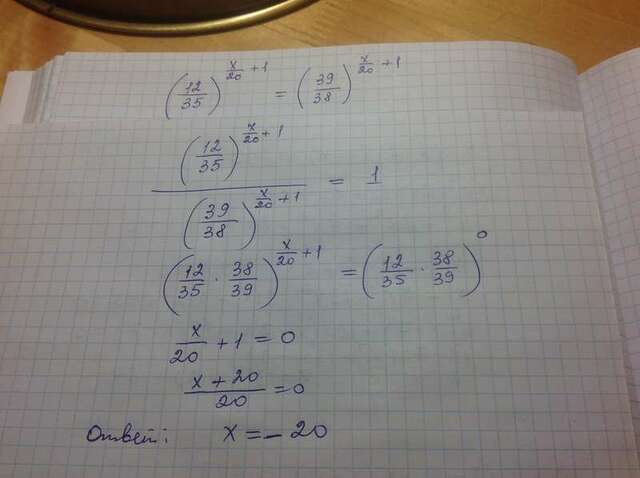 (12/35)^(x/20 + 1) = (39/38)^(x/20 + 1)
(12/35)^(x/20 + 1) / (39/38)^(x/20 + 1) = 1
(12/35 · 38/39)^(x/20 + 1) = (12/35 · 38/39)^0
x/20 + 1 = 0
(x + 20)/20 = 0
Ответ: x = - 20